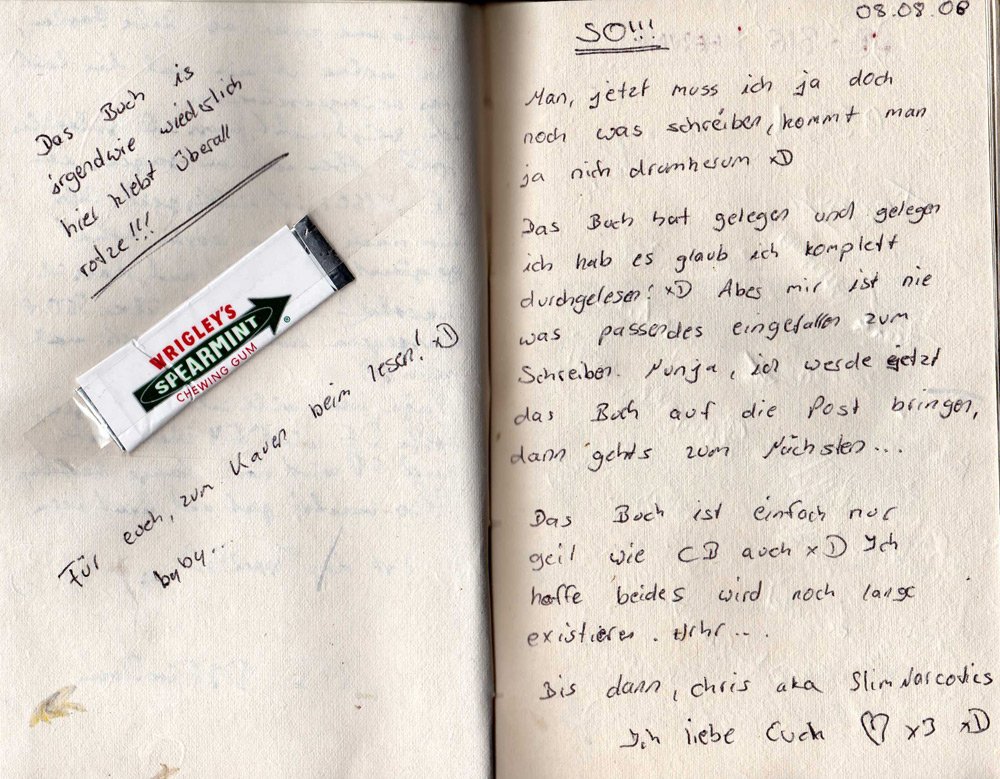 Das Buch is
irgendwie wiederlich
hier klebt überall
rotze!!!
WRIGLEY'S
SPEARMINT
CHEWING GUM
®
Für euch, zum Kauen beim lesen! xD
byby...
08.08.08
SO!!!
Man, jetzt muss ich ja doch
noch was schreiben, kommt man
ja nich drumherum xD
Das Buch hat gelegen und gelegen
ich hab es glaub ich komplett
durchgelesen! xD Aber mir ist nie
was passendes eingefallen zum
Schreiben. Nunja, ich werde jetzt
das Buch auf die Post bringen,
dann gehts zum Nächsten...
Das Buch ist einfach nur
geil wie CB auch xD Ich
hoffe beides wird noch lange
existieren. Hrhr...
Bis dann, chris aka SlimNarcotics
Ich liebe Euch ♡ x3 xD